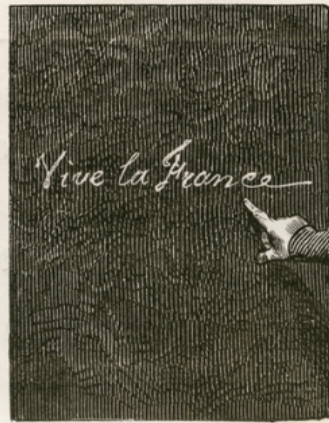 Vive la France